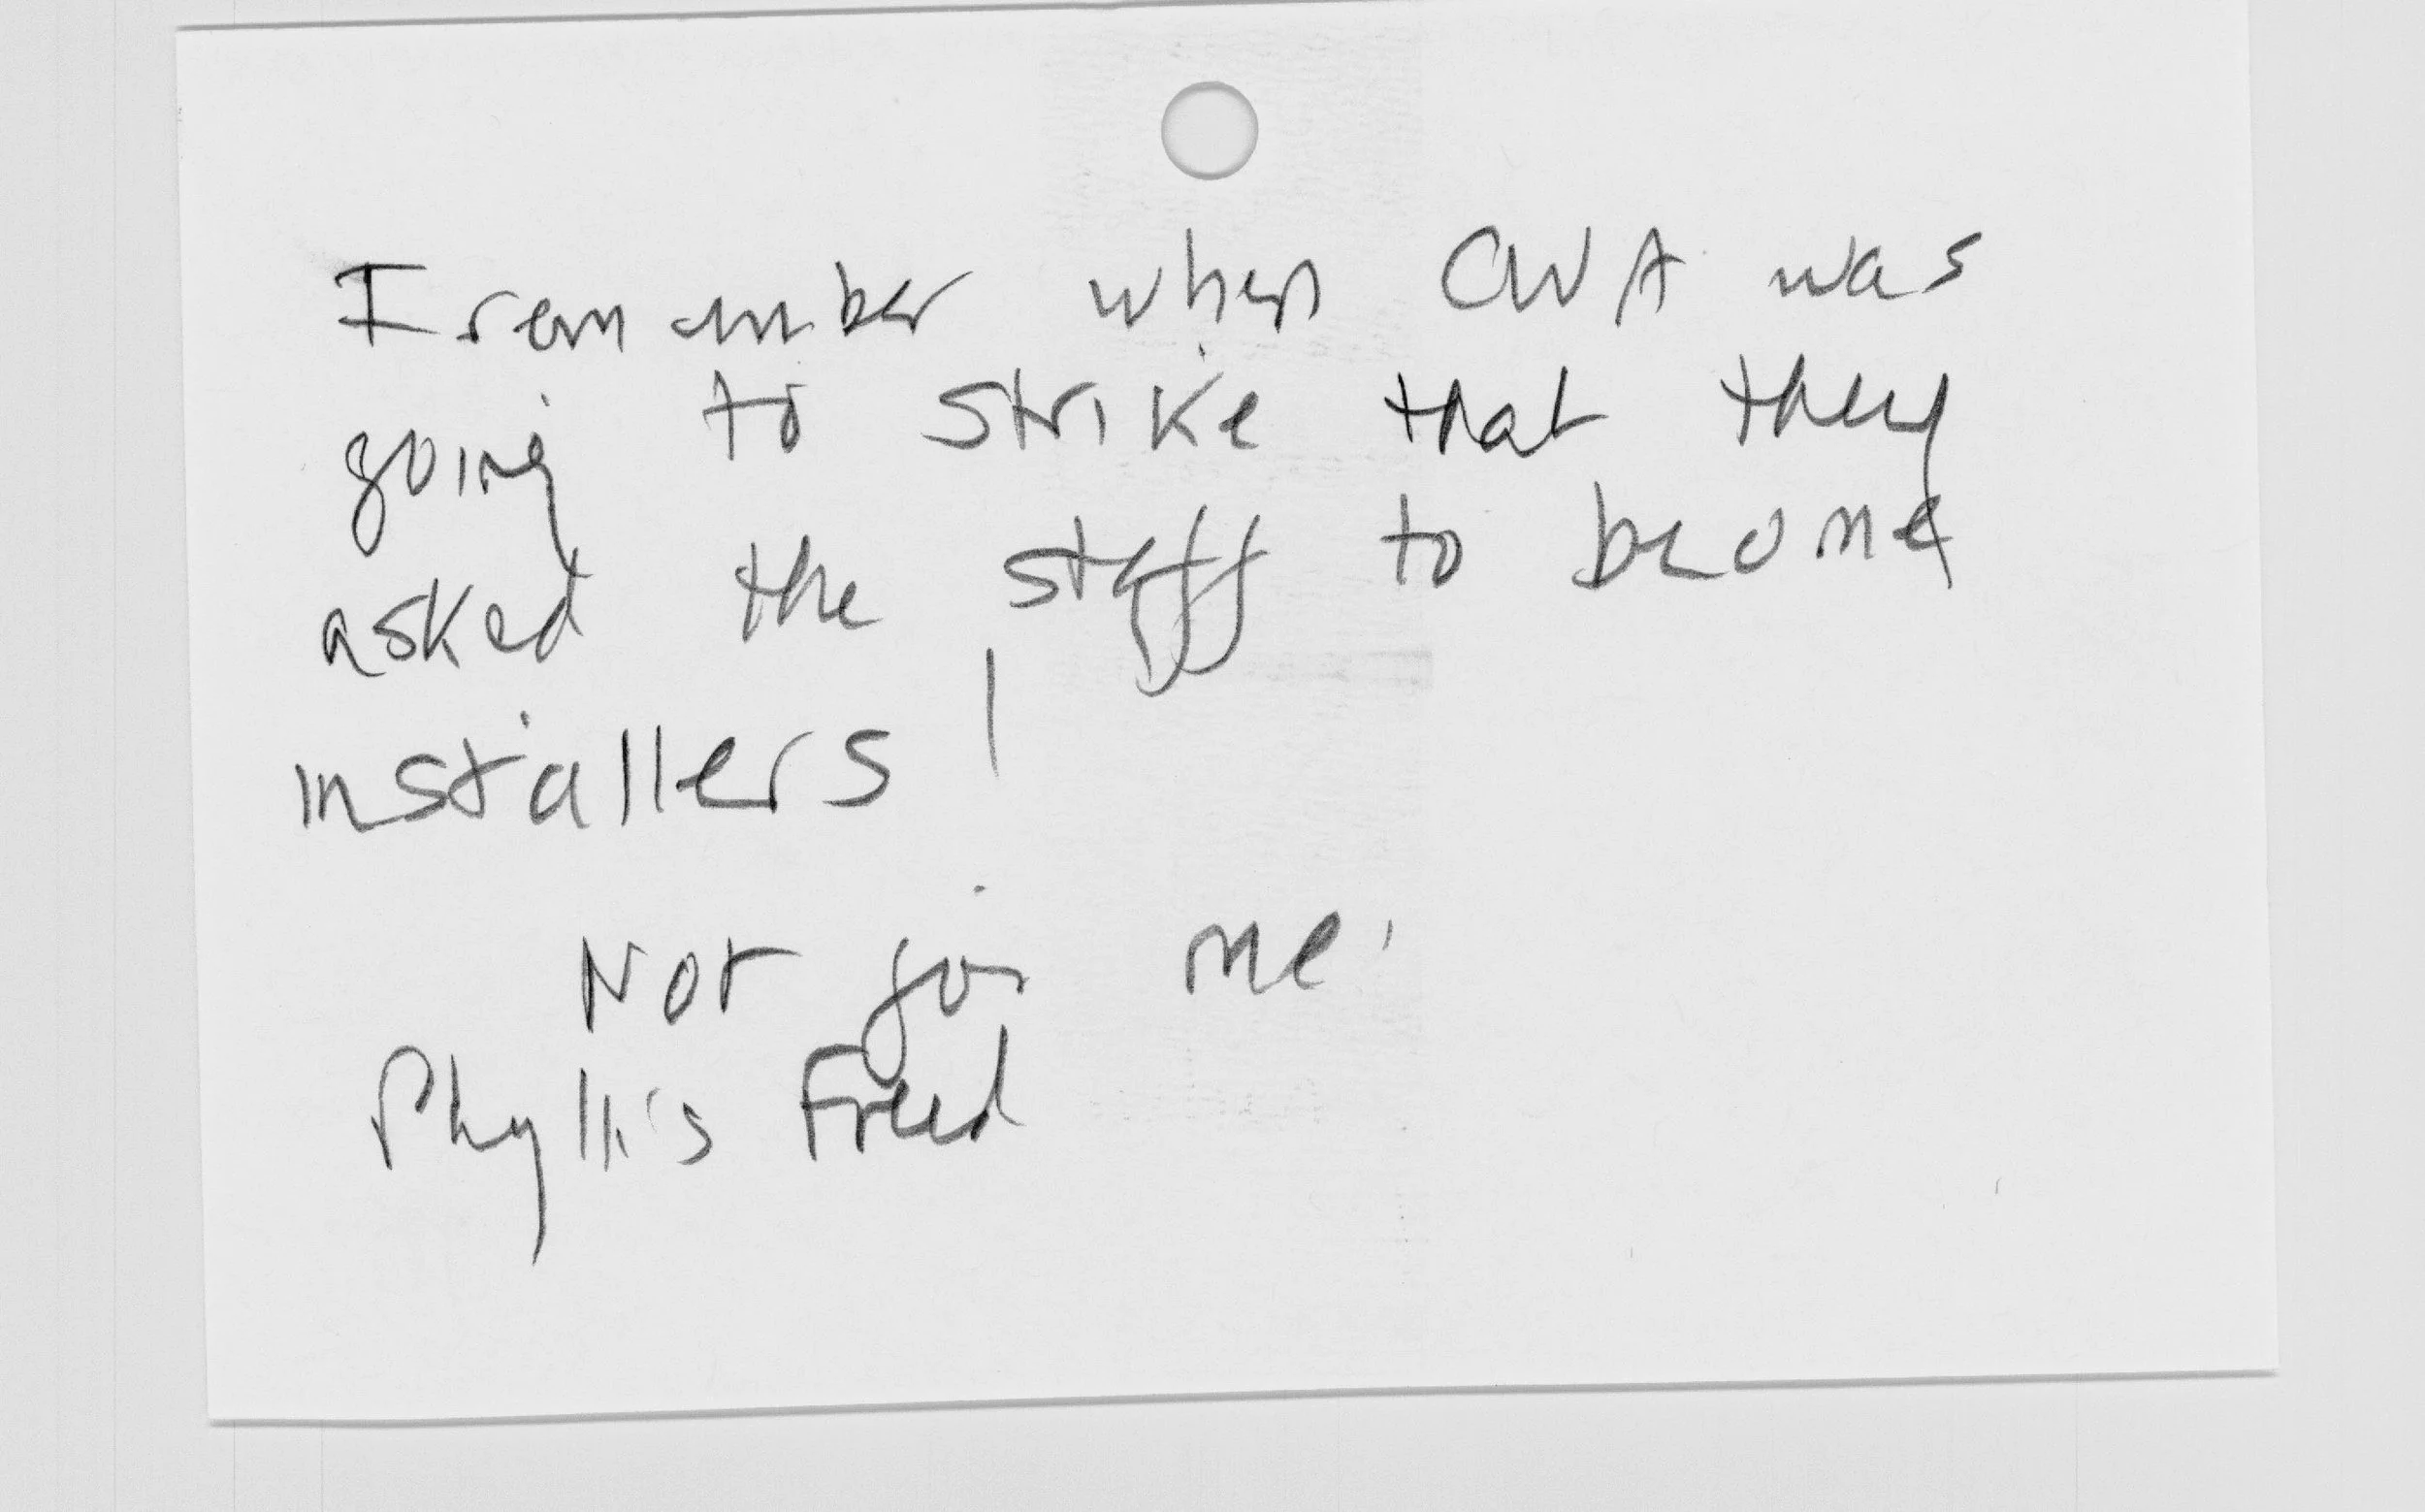 I remember when CWA was
going to strike that they
asked the staff to become
installers!
Not for me.
Phyllis Freed